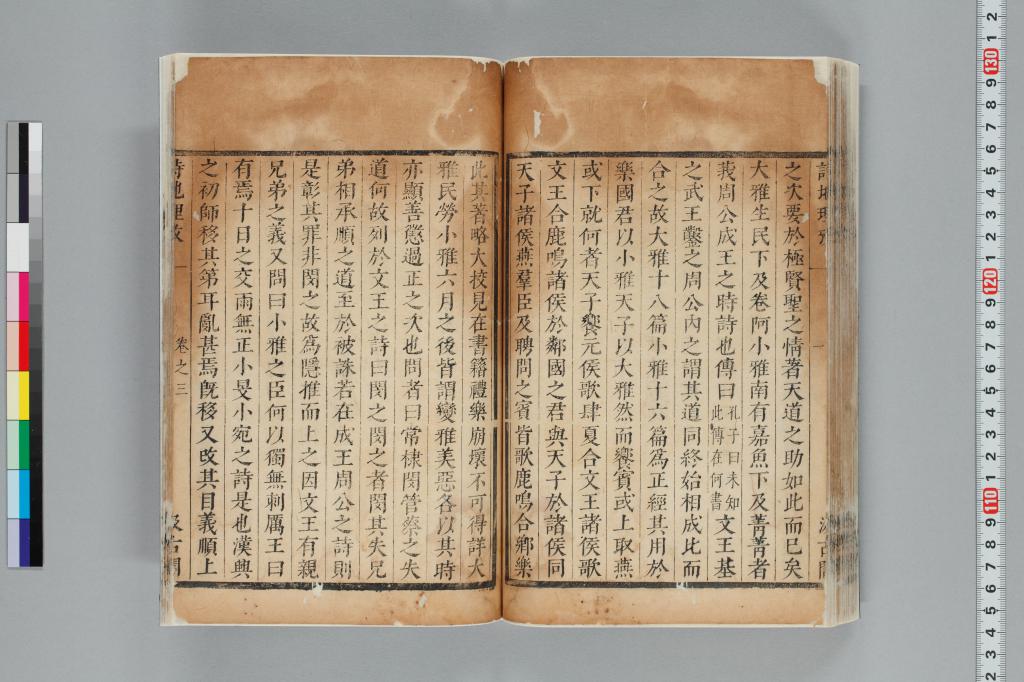 之次要於極賢聖之情著天道之助如此而巳矣
大雅生民下及卷阿小雅南有嘉魚下及菁菁者
莪周公成王之時詩也傳曰孔子曰未知此傳在何書文王基
之武王鑿之周公內之謂其道同終始相成比而
合之故大雅十八篇小雅十六篇為正經其用於
樂國君以小雅天子以大雅然而饗賓或上取燕
或下就何者天子饗元侯歌肆夏合文王諸侯歌
文王合鹿鳴諸侯於鄰國之君與天子於諸侯同
天子諸侯燕羣臣及聘問之賓皆歌鹿鳴合鄉樂
此其著略大校見在書籍禮樂崩壞不可得詳大
雅民勞小雅六月之後皆謂變雅美惡各以其時
亦顯善懲過正之次也問者曰常棣閔管蔡之失
道何故列於文王之詩曰閔之閔之者閔其失兄
弟相承順之道至於被誅若在成王周公之詩則
是彰其罪非閔之故為隱推而上之因文王有親
兄弟之義又問曰小雅之臣何以獨無刺厲王曰
有焉十月之交雨無正小旻小宛之詩是也漢興
之初師移其第耳亂甚焉旣移又改其目義順上
詩地理攷 卷之三 汲古閣